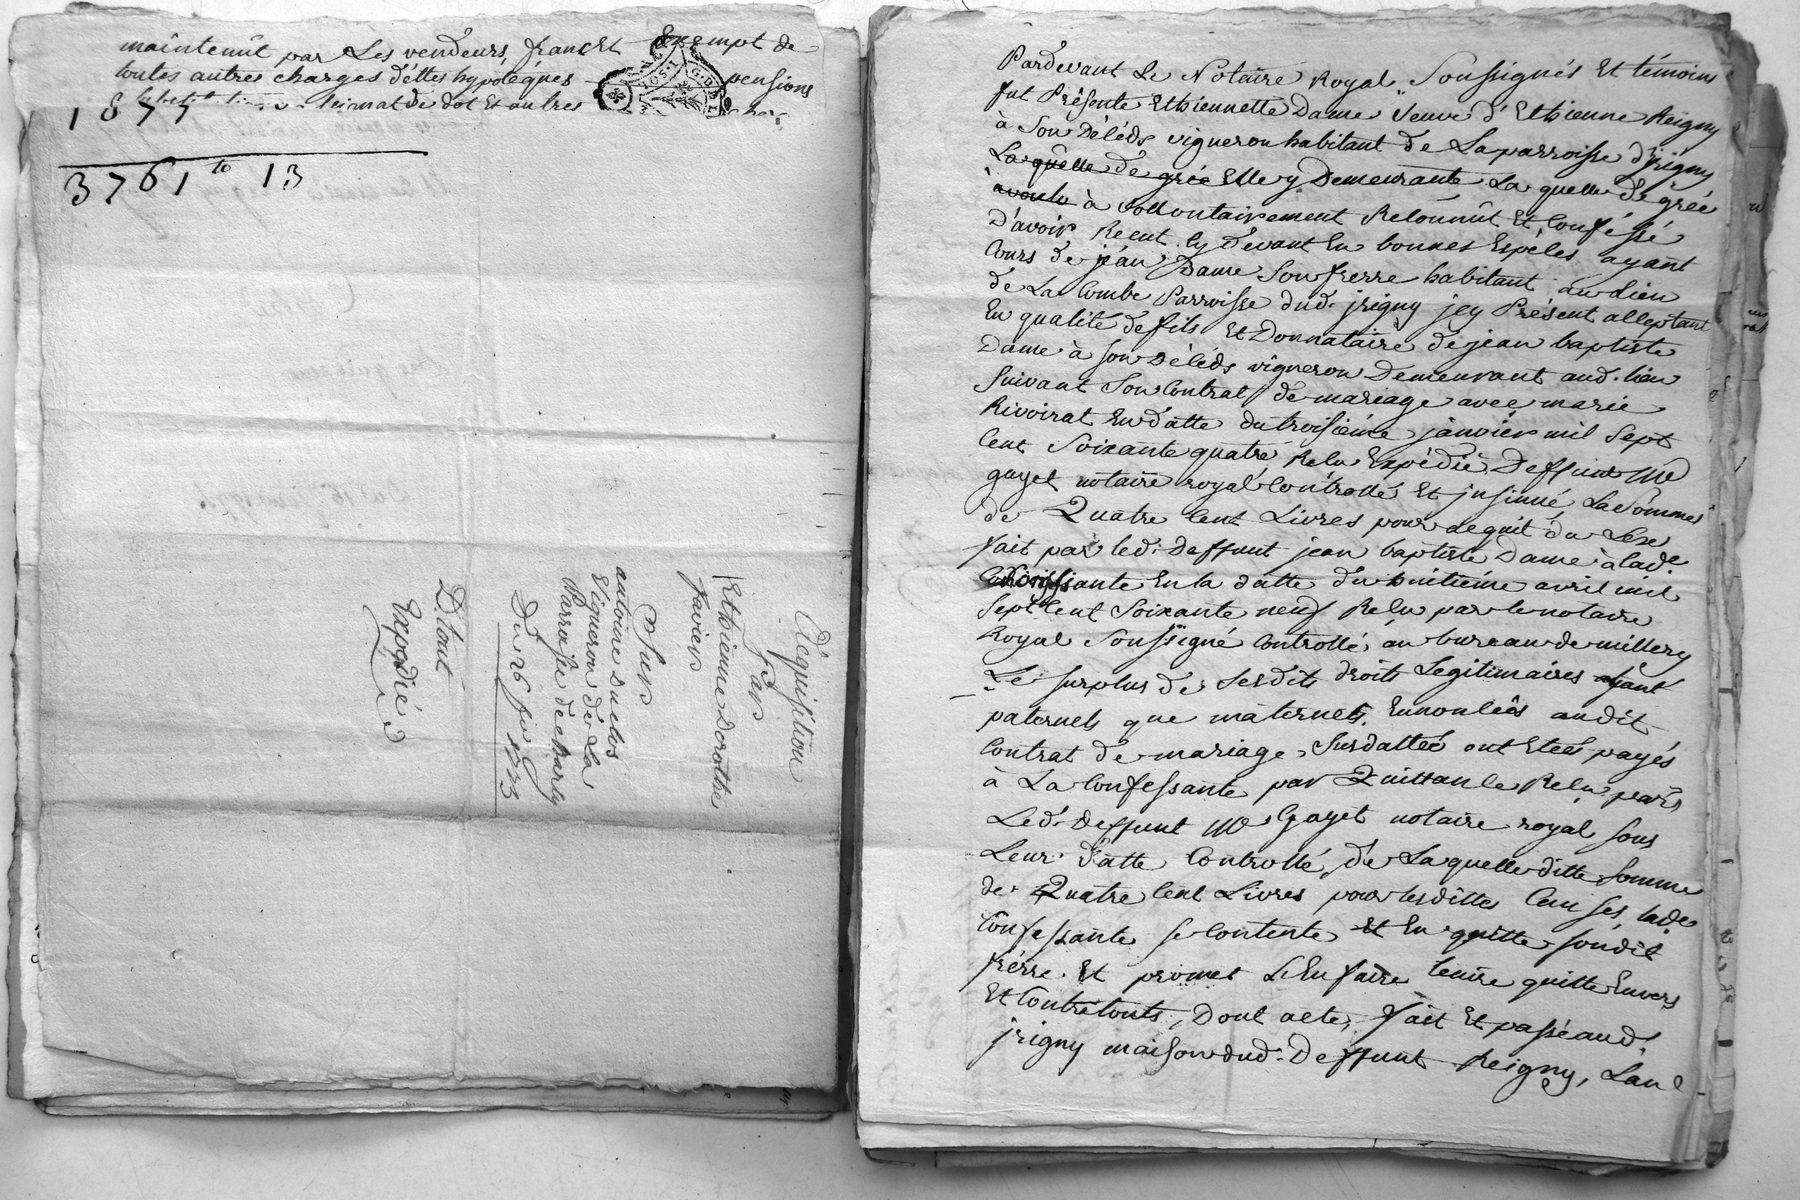 maintenût par Les vendeurs, franc Et Exempt de
toutes autres charges déttes hypotéques pensions
de dot Et autres
1877
3761 tt 13
Acquisition
Par
Ethienne Dorothé
favier
Sur
antoine duclos
Vigneron de La
Paroisse de charly
Du 26 1733
D'tout
Expedié
Pardevant Le Notaire Royal Soussignés Et témoins
fut Présente Ethiennette Dame Veuve d'Ethienne Reigny
à Son Déléds vigneron habitant de La parroisse d'jrigny
La quelle de gréé Elle y Demeurante La quelle de gréé
à voulu à vollontairement Reconnût Et Confessé
D'avoir Recut cy devant En bonnes Espéces ayant
Cours de jéan Dame Son frerre habitant au lieu
de La Combe Parroisse dud. jrigny jcy Présent acceptant
En qualité de fils Et Donnataire de jean baptiste
Dame à son Déléds vigneron Demeurant aud. lieu
Suivant Son Contrat de mariage avec marie
Rivoirat En datte du troisiéme janvier mil Sept
Cent Soixante quatre Relu Expédié Deffunt Me
gayet notaire royal Contrôllé Et jnsinué, La Somme
de Quatre Cent Livres pour
fait par led. Deffunt jean baptiste Dame à lade
Confessante En la datte du huitiéme avril mil
Sept Cent Soixante neuf Relu par le notaire
Royal Soussigné Controllé au bureau de millery
Le surplus de Sesdits droits Legitimaires
paternels que maternels Ennoncés audit
Contrat de mariage Susdatteé ont Eteés payés
à La Confessante par Quittance Relu par
Led. Deffunt Me Gayet notaire royal sous
Leur datte Controllé, de La quelle ditte somme
de Quatre Cent Livres pour lesdittes Causes lade
Confessante se Contente Et En quitte son dit
frérre Et promet L'En faire tenire quitte Envers
Et Contre touts, Dont acte, fait Et passé aud.
jrigny maison dud. Deffunt Reigny, Lan